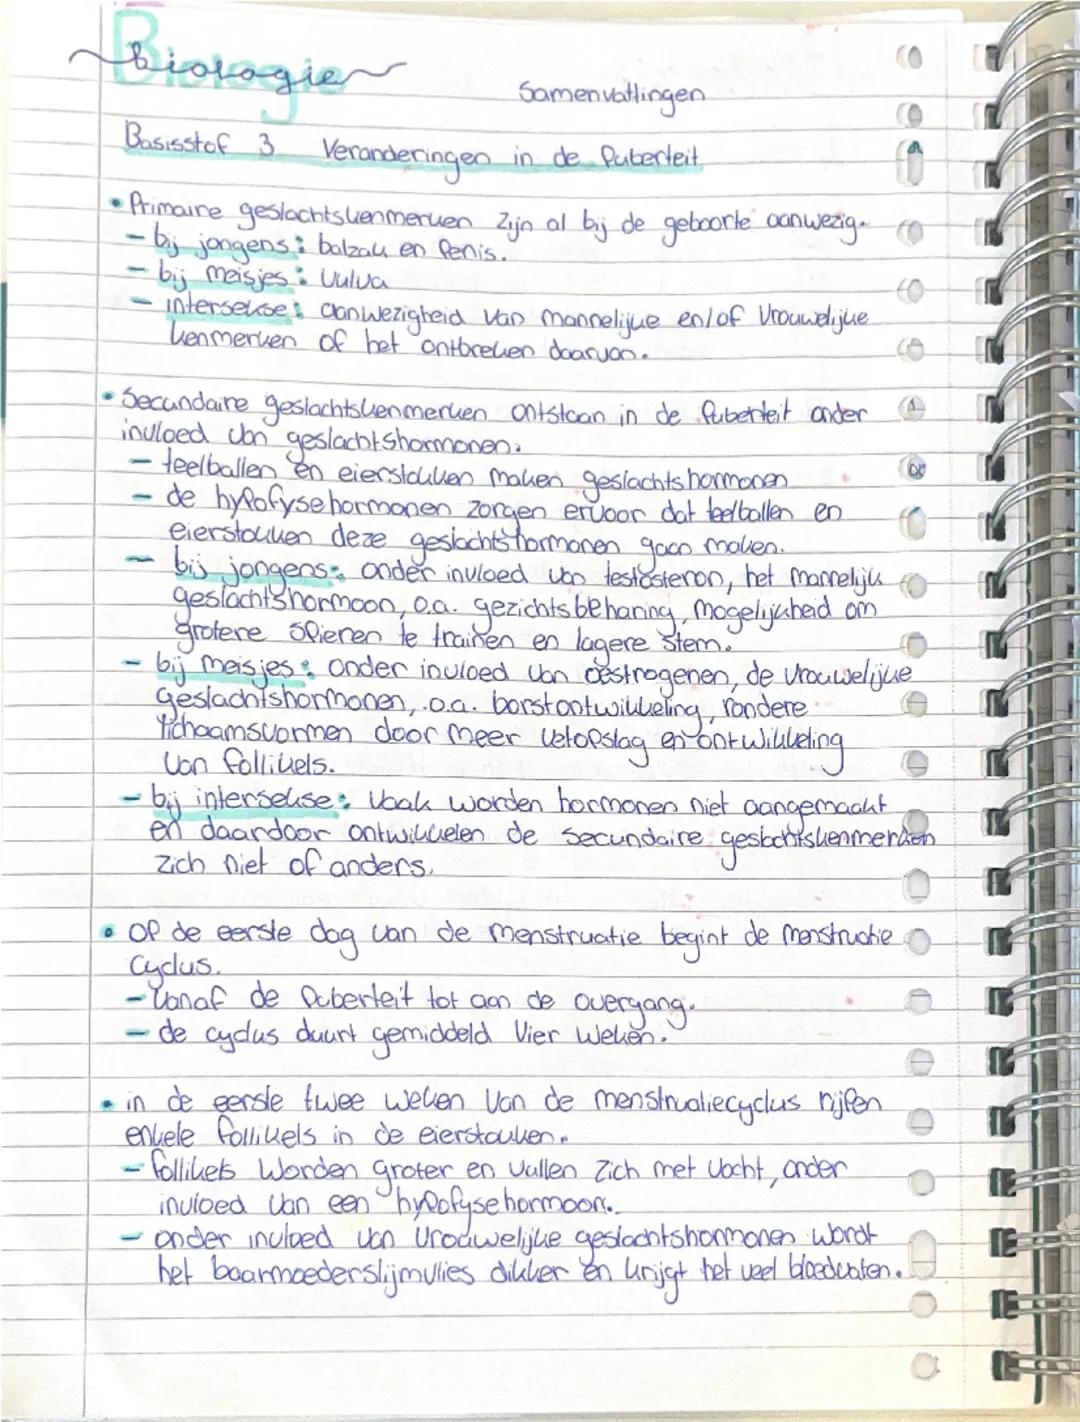 Biologie
Samenvattingen
Basisstof 3 Veranderingen in de Puberteit
• Primaire geslachtskenmerken zijn al bij de geboorte aanwezig.
- bij jongens: balzak en Penis.
- bij meisjes: Vulva
- intersekse: aanwezigheid van mannelijke en/of vrouwelijke
kenmerken of het ontbreken daarvan.
• Secundaire geslachtskenmerken ontstaan in de Puberteit onder
invloed van geslachtshormonen.
- teelballen en eierstokken maken geslachtshormonen
- de hypofysehormonen zorgen ervoor dat teelballen en
eierstokken deze geslachtshormonen gaan maken.
- bij jongens: onder invloed van testosteron, het mannelijk
geslachtshormoon, o.a. gezichtsbeharing, mogelijkheid om
grotere spieren te trainen en lagere stem.
- bij meisjes: onder invloed van oestrogenen, de vrouwelijke
geslachtshormonen, o.a. borstontwikkeling, rondere
lichaamsvormen door meer vetopslag en ontwikkeling
van follikels.
- bij intersekse: Vaak worden hormonen niet aangemaakt
en daardoor ontwikkelen de secundaire geslachtskenmerken
zich niet of anders.
• Op de eerste dag van de menstruatie begint de menstruatie
Cyclus.
- Vanaf de Puberteit tot aan de overgang.
- de cyclus duurt gemiddeld vier weken.
• in de eerste twee weken van de menstruatiecyclus rijpen
enkele follikels in de eierstokken.
- follikels worden groter en vullen zich met vocht, onder
invloed van een hypofysehormoon.
- onder invloed van vrouwelijke geslachtshormonen wordt
het baarmoederslijmvlies dikker en krijgt het veel bloedvaten.